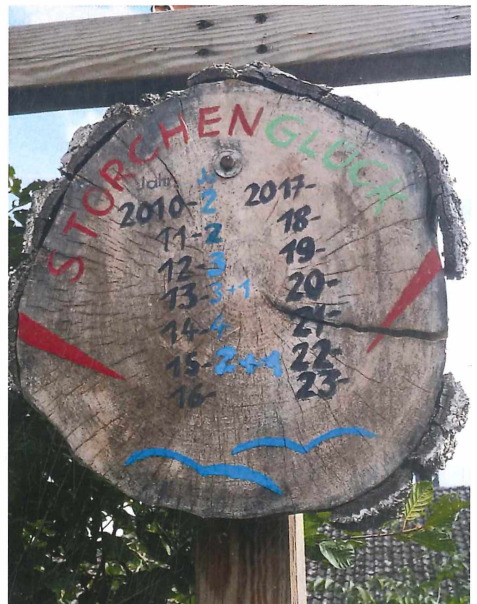 STORCHENGLÜCK
Jahr
2010-2
11-2
12-3
13-3+1
14-4
15-2++1
16-
2017-
18-
19-
20-
21-
22-
23-